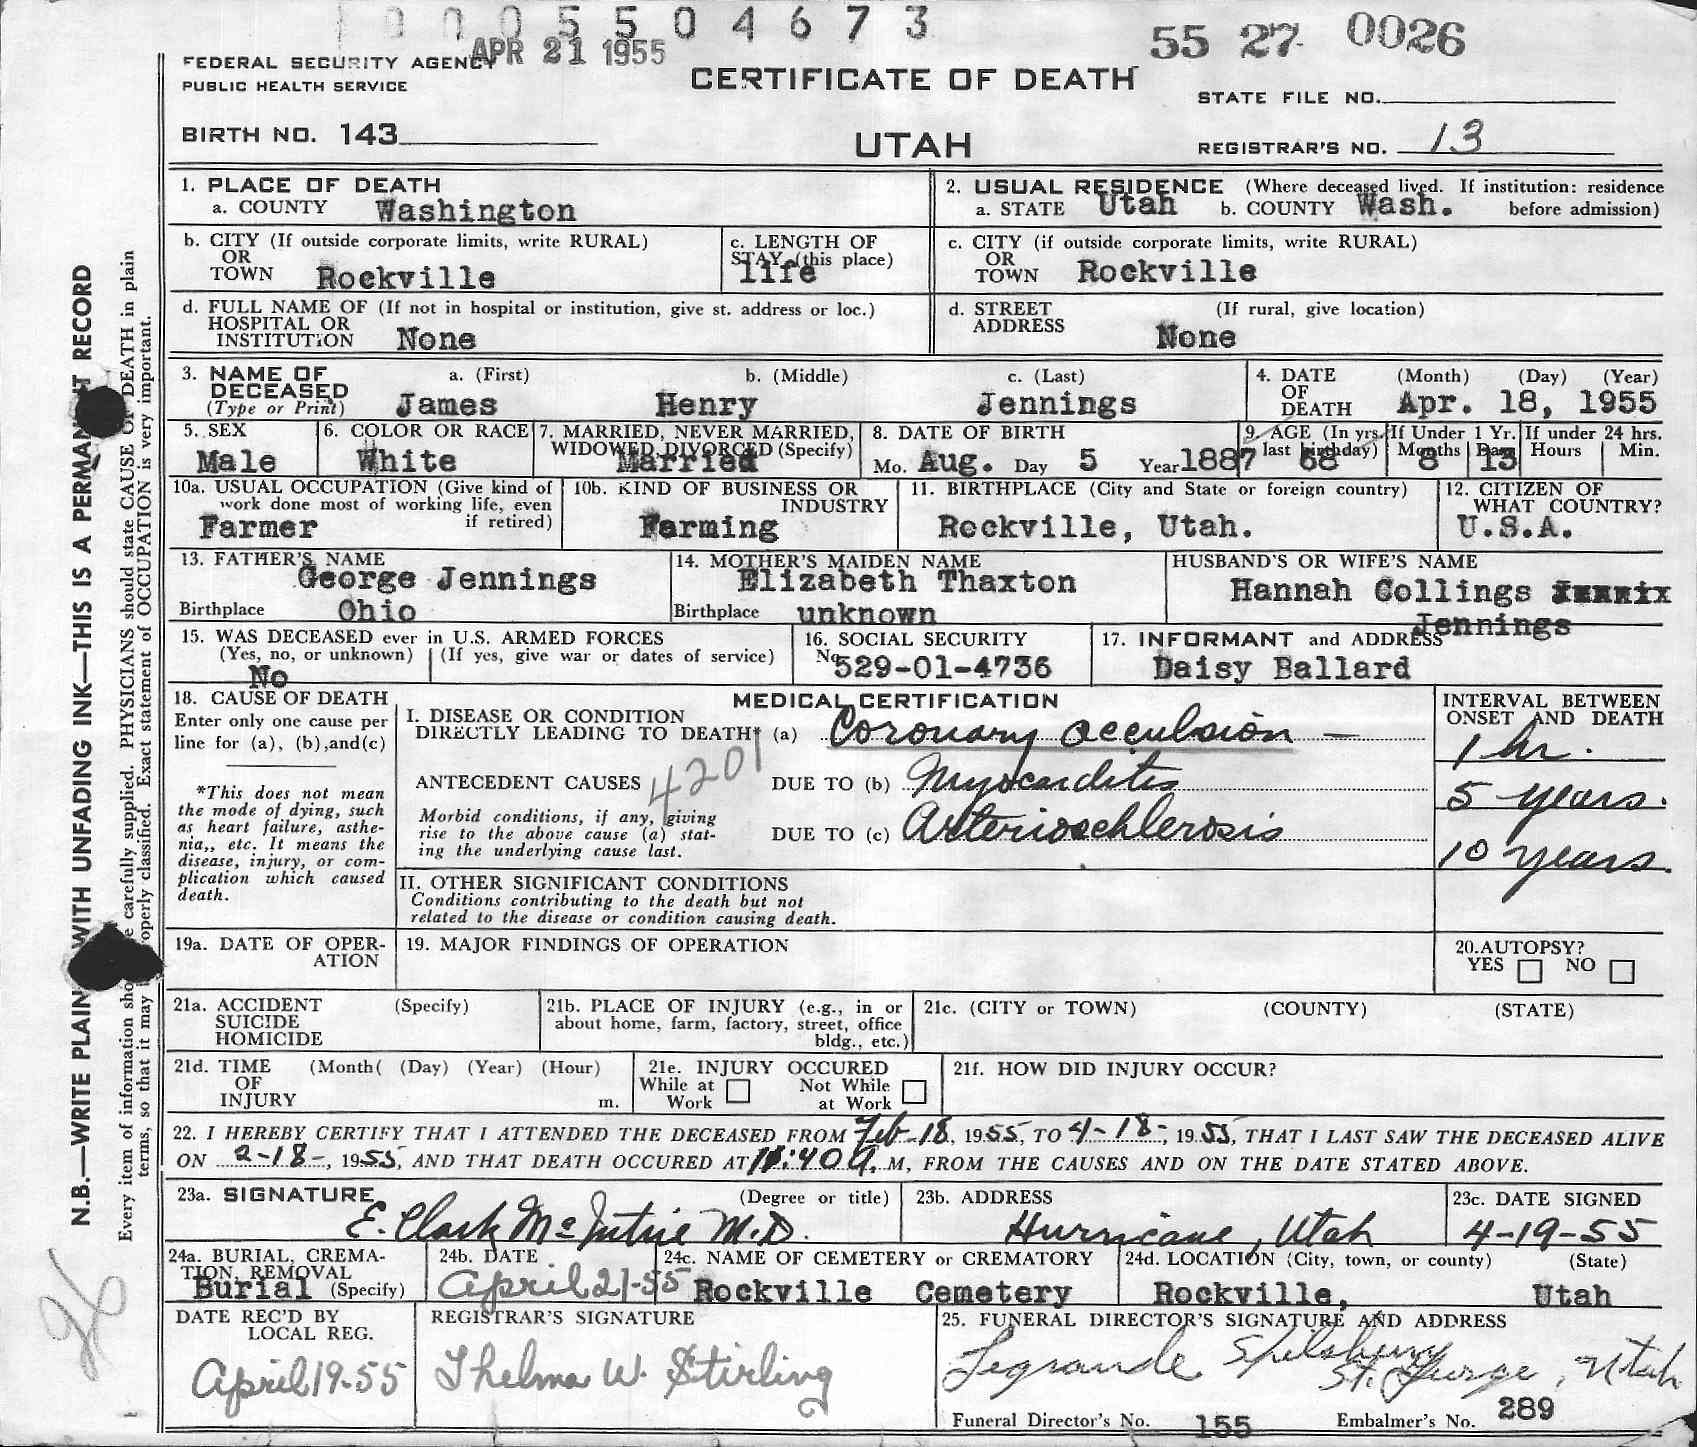 0005504673
APR 21 1955
55 27 0026
FEDERAL SECURITY AGENCY
PUBLIC HEALTH SERVICE
CERTIFICATE OF DEATH
STATE FILE NO.
BIRTH NO. 143
UTAH
REGISTRAR'S NO. 13
1. PLACE OF DEATH
a. COUNTY Washington
2. USUAL RESIDENCE (Where deceased lived. If institution: residence
a. STATE Utah b. COUNTY Wash. before admission)
b. CITY (If outside corporate limits, write RURAL)
OR
TOWN Rockville
c. LENGTH OF
STAY (this place)
life
c. CITY (if outside corporate limits, write RURAL)
OR
TOWN Rockville
d. FULL NAME OF (If not in hospital or institution, give st. address or loc.)
HOSPITAL OR
INSTITUTION None
d. STREET (If rural, give location)
ADDRESS
None
3. NAME OF a. (First) b. (Middle) c. (Last)
DECEASED
(Type or Print) James Henry Jennings
4. DATE (Month) (Day) (Year)
OF
DEATH Apr. 18, 1955
5. SEX
Male
6. COLOR OR RACE
White
7. MARRIED, NEVER MARRIED,
WIDOWED DIVORCED (Specify)
Married
8. DATE OF BIRTH
Mo. Aug. Day 5 Year 1887
9. AGE (In yrs.
last birthday) 68
If Under 1 Yr.
Months 8 Days 13
If under 24 hrs.
Hours Min.
10a. USUAL OCCUPATION (Give kind of
work done most of working life, even
if retired)
Farmer
10b. KIND OF BUSINESS OR
INDUSTRY
Farming
11. BIRTHPLACE (City and State or foreign country)
Rockville, Utah.
12. CITIZEN OF
WHAT COUNTRY?
U.S.A.
13. FATHER'S NAME
George Jennings
Birthplace Ohio
14. MOTHER'S MAIDEN NAME
Elizabeth Thaxton
Birthplace unknown
HUSBAND'S OR WIFE'S NAME
Hannah Collings
Jennings
15. WAS DECEASED ever in U.S. ARMED FORCES
(Yes, no, or unknown) (If yes, give war or dates of service)
No
16. SOCIAL SECURITY
No. 529-01-4736
17. INFORMANT and ADDRESS
Daisy Ballard
18. CAUSE OF DEATH
Enter only one cause per
line for (a), (b), and (c)
*This does not mean
the mode of dying, such
as heart failure, asthe-
nia,, etc. It means the
disease, injury, or com-
plication which caused
death.
MEDICAL CERTIFICATION
I. DISEASE OR CONDITION
DIRECTLY LEADING TO DEATH* (a) Coronary occulsion —
4201
ANTECEDENT CAUSES DUE TO (b) Myocarditis
Morbid conditions, if any, giving
rise to the above cause (a) stat-
ing the underlying cause last.
DUE TO (c) Arterioschlerosis
INTERVAL BETWEEN
ONSET AND DEATH
1 hr.
5 years.
10 years.
II. OTHER SIGNIFICANT CONDITIONS
Conditions contributing to the death but not
related to the disease or condition causing death.
19a. DATE OF OPER-
ATION
19. MAJOR FINDINGS OF OPERATION
20. AUTOPSY?
YES NO
21a. ACCIDENT (Specify)
SUICIDE
HOMICIDE
21b. PLACE OF INJURY (e.g., in or
about home, farm, factory, street, office
bldg., etc.)
21c. (CITY or TOWN) (COUNTY) (STATE)
21d. TIME (Month( (Day) (Year) (Hour)
OF
INJURY m.
21e. INJURY OCCURED
While at Work Not While at Work
21f. HOW DID INJURY OCCUR?
22. I HEREBY CERTIFY THAT I ATTENDED THE DECEASED FROM Feb-18, 1955, TO 4-18-, 1955, THAT I LAST SAW THE DECEASED ALIVE
ON 2-18-, 1955, AND THAT DEATH OCCURED AT 11:40 a. M, FROM THE CAUSES AND ON THE DATE STATED ABOVE.
23a. SIGNATURE (Degree or title)
E. Clark McIntire M.D.
23b. ADDRESS
Hurricane, Utah
23c. DATE SIGNED
4-19-55
24a. BURIAL, CREMA-
TION, REMOVAL
Burial (Specify)
24b. DATE
April 21-55
24c. NAME OF CEMETERY or CREMATORY
Rockville Cemetery
24d. LOCATION (City, town, or county) (State)
Rockville, Utah
DATE REC'D BY
LOCAL REG.
April 19-55
REGISTRAR'S SIGNATURE
Thelma W. Stirling
25. FUNERAL DIRECTOR'S SIGNATURE AND ADDRESS
Legrande Spilsbury
St. George, Utah
Funeral Director's No. 155 Embalmer's No. 289
N.B.—WRITE PLAIN WITH UNFADING INK—THIS IS A PERMANENT RECORD
Every item of information should be carefully supplied. PHYSICIANS should state CAUSE OF DEATH in plain
terms, so that it may be properly classified. Exact statement of OCCUPATION is very important.
26